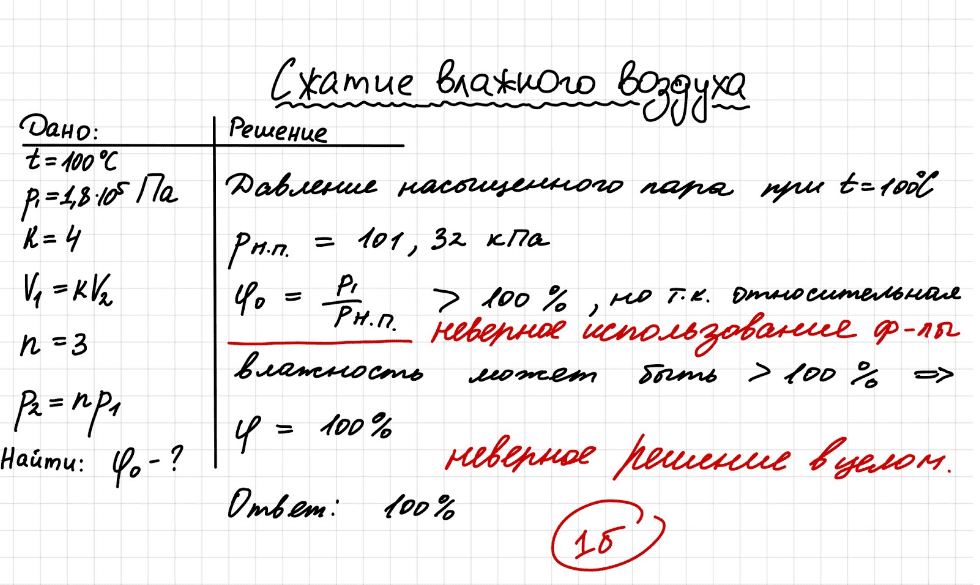 Сжатие влажного воздуха
Дано:
t = 100°C
p₁ = 1,8·10⁵ Па
k = 4
V₁ = kV₂
n = 3
p₂ = np₁
Найти: φ₀ - ?
Решение
Давление насыщенного пара при t = 100°C
pн.п. = 101,32 кПа
φ₀ = p₁/pн.п. > 100 %, но т.к. относительная
неверное использование ф-лы
влажность может быть > 100 % ⇒
φ = 100%
неверное решение в целом.
Ответ: 100%
1б